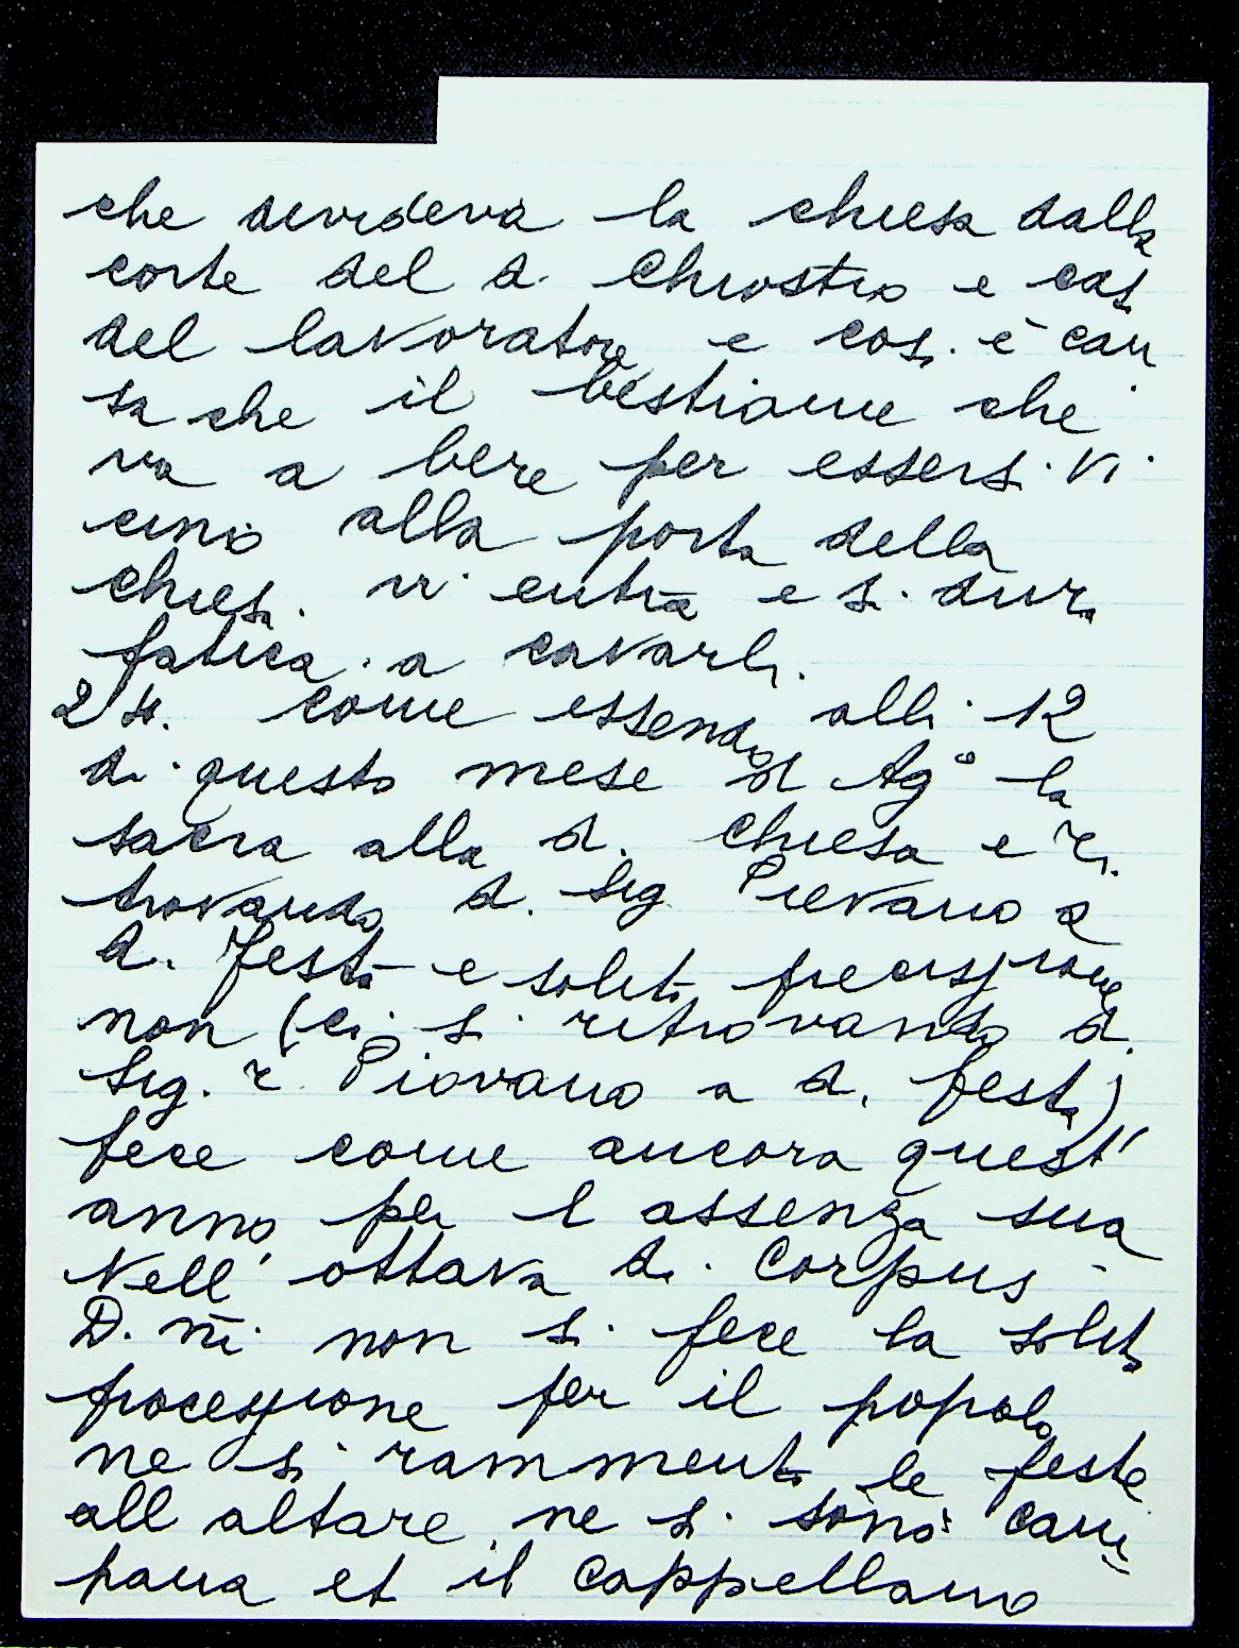 che divideva la chiesa dalla
corte del d. Chiostro e cas
del lavoratore e cosi è cau
sa che il bestiame che
va a bere per essersi vi
cino alla porta della
chiesa vi entra e si dura
fatica a cavarli.
24. come essendo alli 12
di questo mese d Ag° la
sacra alla d. Chiesa e ri
trovando d. Sig Pievano a
d. festa e solita precissione
non (ci si ritrovando d.
Sig. r Piovano a d. festa)
fece come ancora quest'
anno per l assenza sua
Nell' ottava di Corpus
D. ni non si fece la solita
processione per il popolo
ne si rammenta le feste
all altare ne si sonò cam
pana et il Cappellano